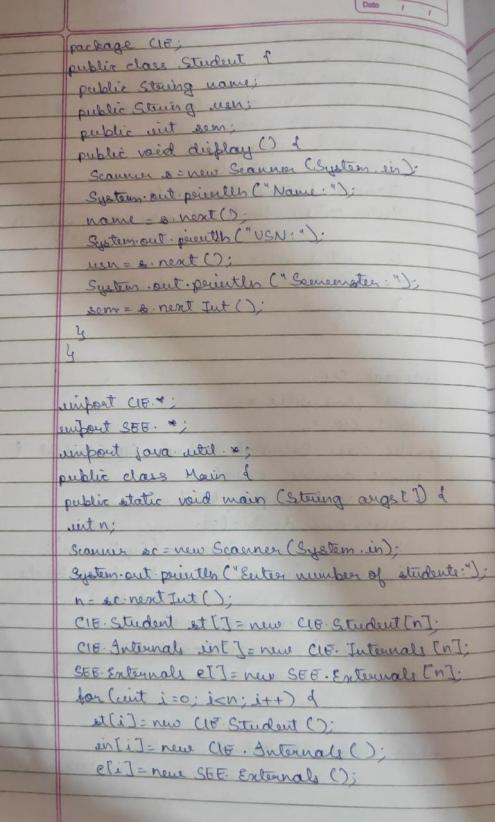 Date
package CIE;
public class Student {
public String name;
public String usn;
public int sem;
public void display () {
Scanner s = new Scanner (System.in);
System.out.println ("Name: ");
name = s.next ();
System.out.println ("USN: ");
usn = s.next ();
System.out.println ("Sememster: ");
sem = s.next Int ();
}
}
import CIE.*;
import SEE.*;
import java.util.*;
public class Main {
public static void main (String args[]) {
int n;
Scanner sc = new Scanner (System.in);
System.out.println ("Enter number of students:");
n = sc.nextInt ();
CIE.Student st[] = new CIE.Student [n];
CIE.Internals in[] = new CIE.Internals [n];
SEE.Externals e[] = new SEE.Externals [n];
for (int i=0; i<n; i++) {
st[i] = new CIE.Student ();
in[i] = new CIE.Internals ();
e[i] = new SEE.Externals ();